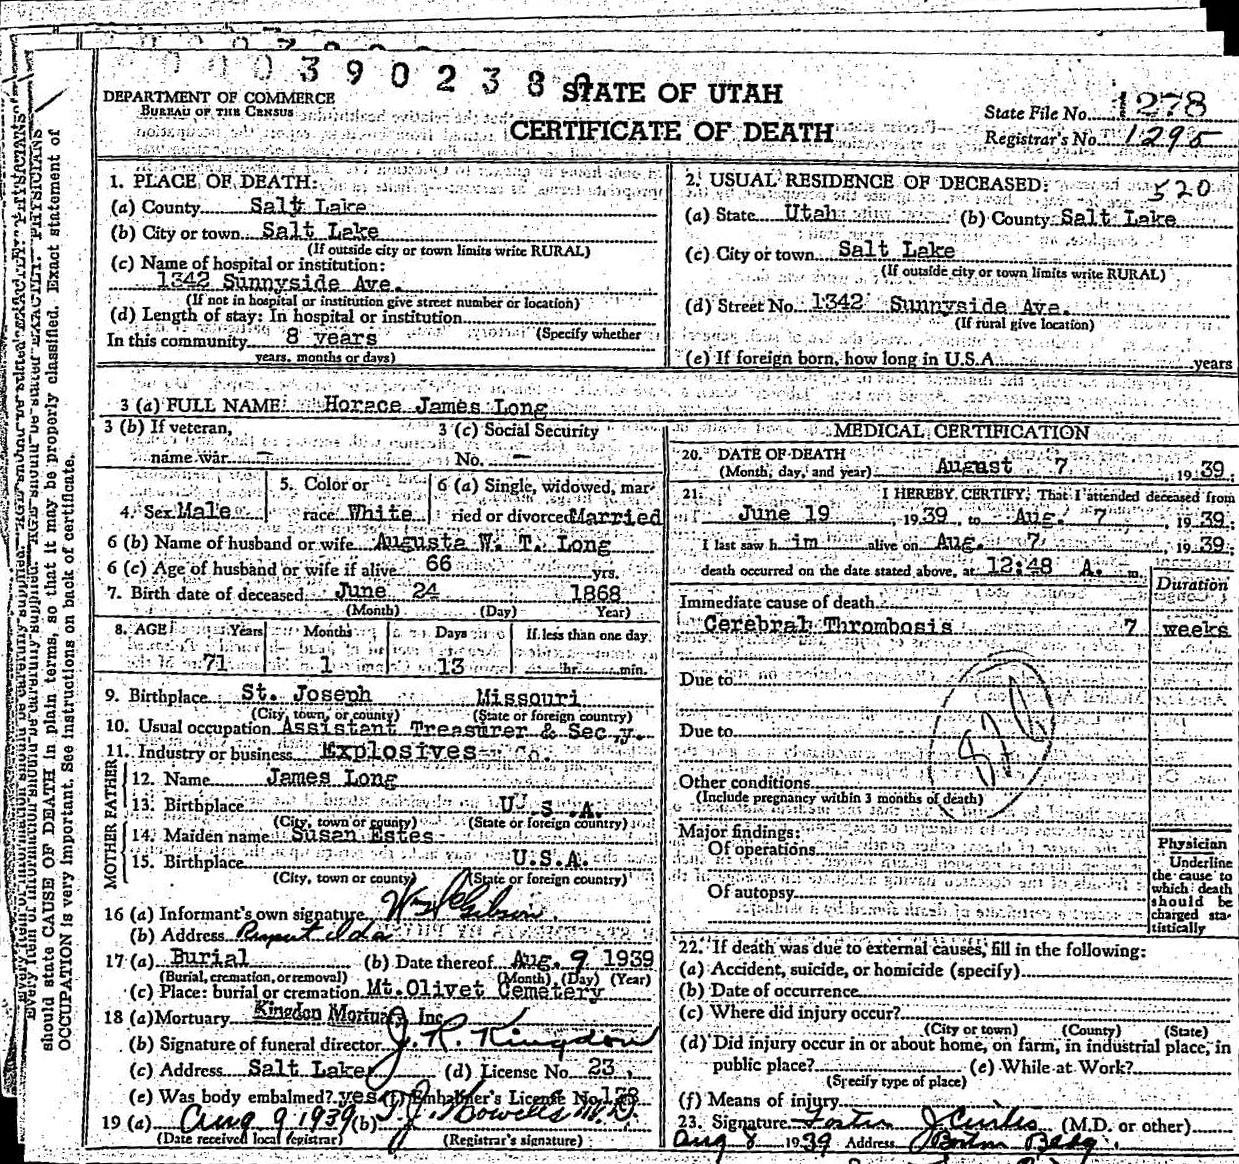 0 0 0 3 9 0 2 3 8
STATE OF UTAH
CERTIFICATE OF DEATH
DEPARTMENT OF COMMERCE
BUREAU OF THE CENSUS
State File No. 1278
Registrar's No. 1295
1. PLACE OF DEATH:
(a) County Salt Lake
(b) City or town Salt Lake
(If outside city or town limits write RURAL)
(c) Name of hospital or institution:
1342 Sunnyside Ave.
(If not in hospital or institution give street number or location)
(d) Length of stay: In hospital or institution
(Specify whether
In this community 8 years
years, months or days)
2. USUAL RESIDENCE OF DECEASED:
520
(a) State Utah (b) County Salt Lake
(c) City or town Salt Lake
(If outside city or town limits write RURAL)
(d) Street No. 1342 Sunnyside Ave.
(If rural give location)
(e) If foreign born, how long in U.S.A. years
3 (a) FULL NAME: Horace James Long
3 (b) If veteran,
name war —
3 (c) Social Security
No. —
4. Sex Male
5. Color or
race White
6 (a) Single, widowed, mar-
ried or divorced Married
6 (b) Name of husband or wife Augusta W. T. Long
6 (c) Age of husband or wife if alive 66 yrs.
7. Birth date of deceased June 24 1868
(Month) (Day) Year)
8. AGE Years Months Days If less than one day
71 1 13 hr. min.
9. Birthplace St. Joseph Missouri
(City, town, or county) (State or foreign country)
10. Usual occupation Assistant Treasurer & Sec,y.
11. Industry or business Explosives Co.
FATHER
12. Name James Long
13. Birthplace U.S.A.
(City, town or county) (State or foreign country)
MOTHER
14. Maiden name Susan Estes
15. Birthplace U.S.A.
(City, town or county) (State or foreign country)
16 (a) Informant's own signature Wm Gibson
(b) Address Rupert Ida
17 (a) Burial (b) Date thereof Aug. 9 1939
(Burial, cremation, or removal) (Month) (Day) (Year)
(c) Place: burial or cremation Mt.Olivet Cemetery
18 (a) Mortuary Kingdon Mortuary Inc
(b) Signature of funeral director J. R. Kingdon
(c) Address Salt Lake (d) License No. 23
(e) Was body embalmed? yes (f) Embalmer's License No.
19 (a) Aug 9 1939 (b) T. J. Howells M.D.
(Date received local registrar) (Registrar's signature)
MEDICAL CERTIFICATION
20. DATE OF DEATH
(Month, day, and year) August 7 , 19 39.
21. I HEREBY CERTIFY, That I attended deceased from
June 19 , 19 39, to Aug. 7 , 19 39;
I last saw h im alive on Aug. 7 , 19 39;
death occurred on the date stated above, at 12:48 A. m.
Duration
Immediate cause of death
Cerebral Thrombosis 7 weeks
Due to
Due to
Other conditions
(Include pregnancy within 3 months of death)
Major findings:
Of operations
Of autopsy
Physician
Underline
the cause to
which death
should be
charged sta-
tistically
22. If death was due to external causes, fill in the following:
(a) Accident, suicide, or homicide (specify)
(b) Date of occurrence
(c) Where did injury occur?
(City or town) (County) (State)
(d) Did injury occur in or about home, on farm, in industrial place, in
public place? (e) While at Work?
(Specify type of place)
(f) Means of injury
23. Signature Foster J. Curtis (M.D. or other)
Aug 8 1939 Address Boston Bldg.
should state CAUSE OF DEATH in plain terms, so that it may be properly classified. Exact statement of
OCCUPATION is very important. See instructions on back of certificate.